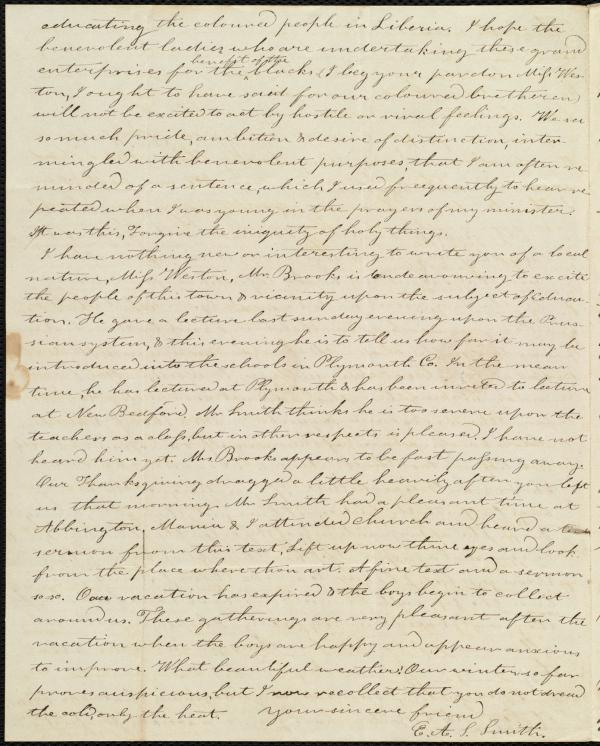 educating the coloured people in Liberia. I hope the
benevolent ladies who are undertaking these grand
benefit of the
enterprises for the blacks (I beg your pardon Miss Wes-
ton, I ought to have said for our coloured brethren)
will not be excited to act by hostile or rival feelings. We see
so much pride, ambition & desire of distinction, inter-
mingled with benevolent purposes, that I am often re
minded of a sentence, which I used frequently to hear re
peated when I was young in the prayers of my minister.
It was this, Forgive the iniquity of holy things.
I have nothing new or interesting to write you of a local
nature, Miss Weston, Mr. Brooks is endeavouring to excite
the people of this town & vicinity upon the subject of Educa-
tion. He gave a lecture last sunday evening upon the Prus-
sian system, & this evening he is to tell us how far it may be
introduced into the schools in Plymouth Co. In the mean
time, he has lectured at Plymouth & has been invited to lecture
at New Bedford. Mr Smith thinks he is too severe upon the
teachers as a class, but in other respects is pleased. I have not
heard him yet. Mrs Brooks appears to be fast passing away.
Our Thanksgiving dragged a little heavily after you left
us that morning. Mr Smith had a pleasant time at
Abbington, Maria & I attended church and heard a
sermon from this text, Lift up now thine eyes and look
from the place where thou art. A fine text and a sermon
so so. Our vacation has expired & the boys begin to collect
around us. These gatherings are very pleasant after the
vacation when the boys are happy and appear anxious
to improve. What beautiful weather! Our winter so far
proves auspicious, but I now recollect that you do not dread
the cold, only the heat. your sincere friend
E. A. S. Smith.